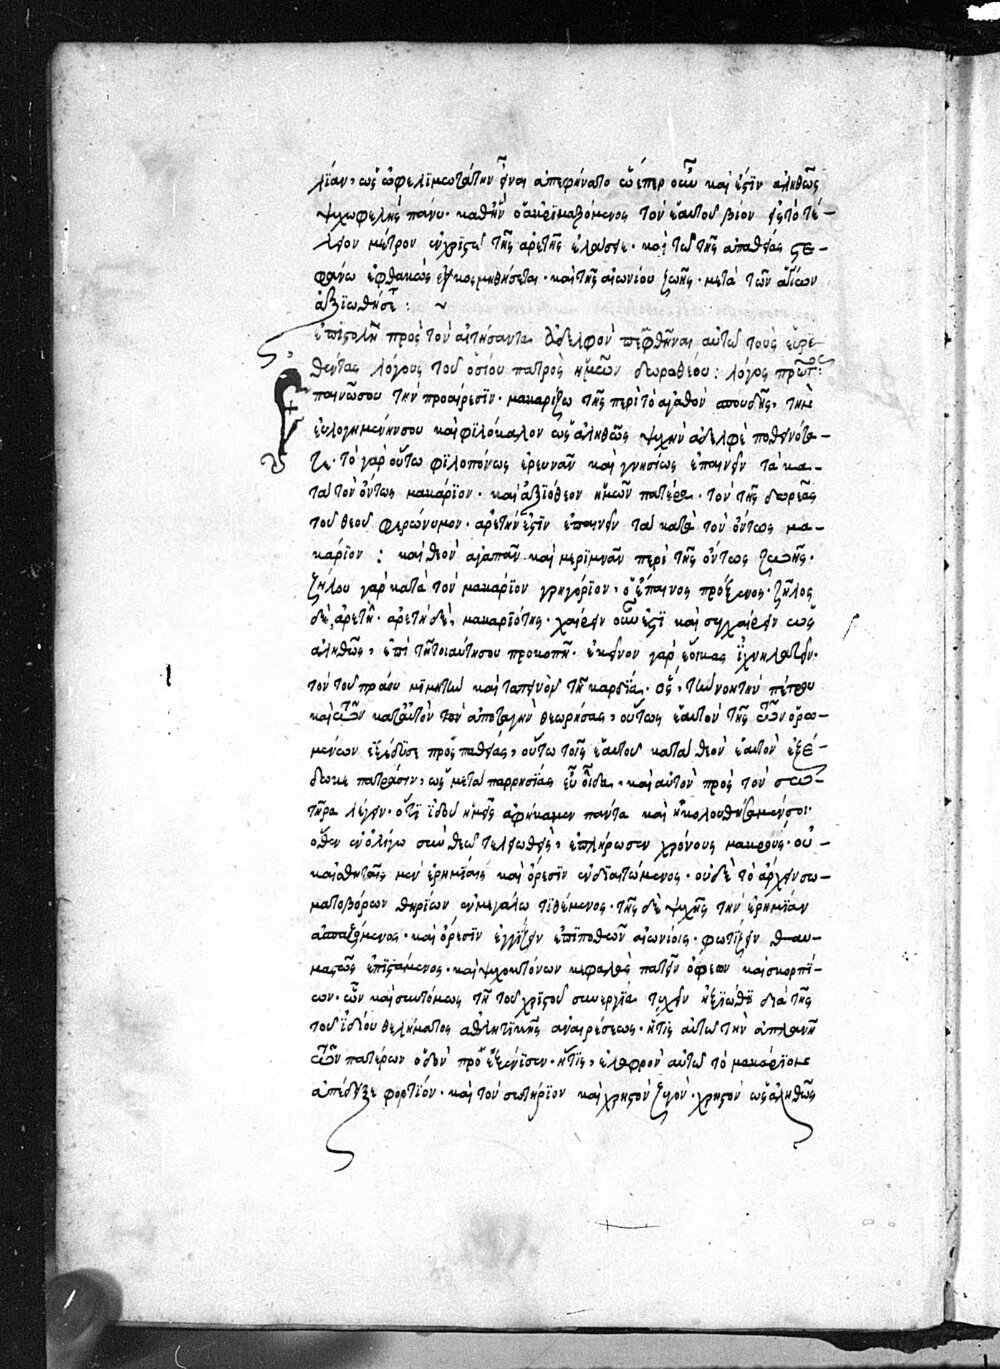 λΐαν, ὡς ὠφελϊμωτάτην εἶναι ἀπεφήνατο ὥσπερ οὖν καὶ ἐστὶν ἀληθῶς
ψυχωφελὴς πάνυ· καθ' ἣν ὁ ἀκρϊβαζόμενος τὸν ἑαυτοῦ βίον εἰς τὸ τέ-
λειον μέτρον ἐν χριστῶ τῆς ἀρετῆς ἐλάσειε· καὶ τῶ τῆς ἀπαθείας στε-
φάνω ἐφθακὼς ἐγκοσμηθήσεται· καὶ τῆς αἰωνίου ζωῆς· μετὰ τῶν ἁγίων
ἀξϊωθήσεται:
ἐπιστολὴ πρὸς τὸν αἰτήσαντα ἀδελφὸν πεμφθῆναι αὐτῶ τοὺς εὑρε-
θέντας λόγους τοῦ ὁσίου πατρὸς ἡμῶν δωροθέου: λόγος πρῶτος:
Ἐπαινῶ σου τὴν προαίρεσϊν· μακαρίζω τῆς περὶ τὸ ἀγαθὸν σπουδῆς, τὴν
εὐλογημένην σου καὶ φιλόκαλον ὡς ἀληθῶς ψυχὴν ἀδελφὲ ποθεινότα-
τε· τὸ γὰρ οὕτω φϊλοπόνως ἐρευνᾶν καὶ γνησίως ἐπαινεῖν τὰ κα-
τὰ τὸν ὄντως μακάρϊον· καὶ ἀξϊόθεον ἡμῶν πατέρα· τὸν τῆς δωρεᾶς
τοῦ θεοῦ φερώνυμον· ἀρετὴν ἐστὶν ἐπαινεῖν τὰ κατὰ τὸν ὄντως μα-
κάρϊον: καὶ θεὸν ἀγαπᾶν καὶ μερϊμνᾶν περὶ τῆς ὄντως ζωῆς·
ζήλου γὰρ κατὰ τὸν μακάρϊον γρηγόρϊον, ὁ ἔπαινος πρόξενος· ζῆλος
δὲ, ἀρετὴ· ἀρετὴ δὲ, μακαρϊότης· χαίρειν οὖν ἐστὶ καὶ συγχαίρειν ὡς
ἀληθῶς, ἐπὶ τῆ τοιαύτη σου προκοπῆ· ἐκεῖνον γὰρ ἔοικας ἰχνηλατεῖν·
τὸν τοῦ πράου μϊμητὴν καὶ ταπεινοῦ τῆ καρδία· ὃς, τὴν νοητὴν πέτρου
καὶ τῶν κατ' αὐτὸν τὴν ἀποταγὴν θεωρήσας, οὕτως ἑαυτὸν τῆς τῶν ὁρω-
μένων ἐξέδυσε προσπαθείας, οὕτω τοῖς ἑαυτοῦ κατὰ θεὸν ἑαυτὸν ἐξέ-
δωκε πατράσιν, ὡς μετὰ παρρησίας εὖ οἶδα, καὶ αὐτὸν πρὸς τὸν σω-
τῆρα λέγειν· ὅτι ἰδοὺ ἡμεῖς ἀφήκαμεν πάντα καὶ ἠκολουθήσαμέν σοι·
ὅθεν ἐν ὀλίγω σὺν θεῶ τελειωθεὶς, ἐπλήρωσεν χρόνους μακρούς· οὐ-
κ αἰσθηταῖς μὲν ἐρημίαις καὶ ὄρεσϊν ἐνδϊαιτώμενος· οὐδὲ τὸ ἄρχειν σω-
ματοβόρων θηρίων ἐν μεγάλω τϊθέμενος· τῆς δὲ ψυχῆς τὴν ἐρημίαν
ἀσπαζόμενος· καὶ ὄρεσϊν ἐγγίζειν ἐπϊποθῶν αἰωνίοις· φωτίζειν θαυ-
μαστῶς ἐπϊστάμενος· καὶ ψυχοκτόνων κεφαλὰς πατεῖν ὄφεων καὶ σκορπί-
ων· ὧν καὶ συντόμως τῆ τοῦ χριστοῦ συνεργία τυχεῖν ἠξϊώθη διὰ τῆς
τοῦ ἰδίου θελήματος ἀθλητικῆς ἀναιρέσεως· ἥτις αὐτῶ τὴν ἀπλανῆ
τῶν πατέρων ὁδὸν προεξένισεν· ἥτϊς, ἐλαφρὸν αὐτῶ τὸ μακάρϊον
ἀπέδειξε φορτίον· καὶ τὸν σωτήρϊον καὶ χρηστὸν ζυγόν· χρηστὸν ὡς ἀληθῶς